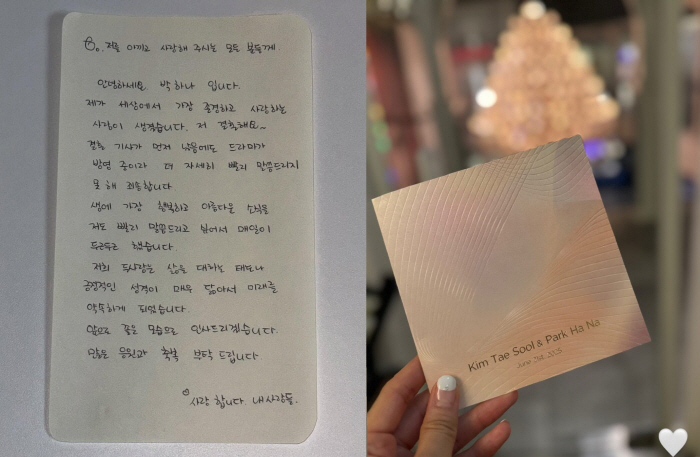 To. 저를 아끼고 사랑해 주시는 모든 분들께.
안녕하세요. 박하나 입니다.
제가 세상에서 가장 존경하고 사랑하는
사람이 생겼습니다. 저 결혼해요~
결혼 기사가 먼저 났음에도 드라마가
방영 중이라 더 자세히 빨리 말씀드리지
못 해 죄송합니다
생에 가장 행복하고 아름다운 소식을
저도 빨리 말씀드리고 싶어서 매일이
두근두근 했습니다.
저희 두사람은 삶을 대하는 태도나
긍정적인 성격이 매우 닮아서 미래를
약속하게 되었습니다.
앞으로 좋은 모습으로 인사드리겠습니다.
많은 응원과 축복 부탁 드립니다
사랑 합니다. 내사람들.
Kim Tae Sool & Park Ha Na
June 21st, 2025